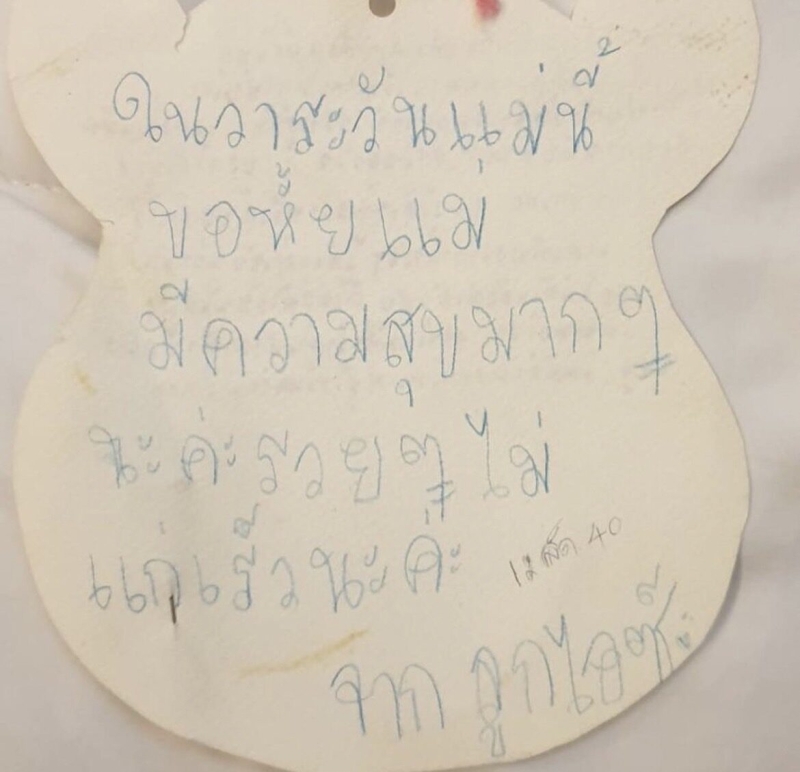 ในวาระวันแม่นี้
ขอหั้ยแม่
มีความสุขมากๆ
นะค่ะรวยๆ ไม่
แก่เร็วนะค่ะ
12 สค. 40
จาก ลูก